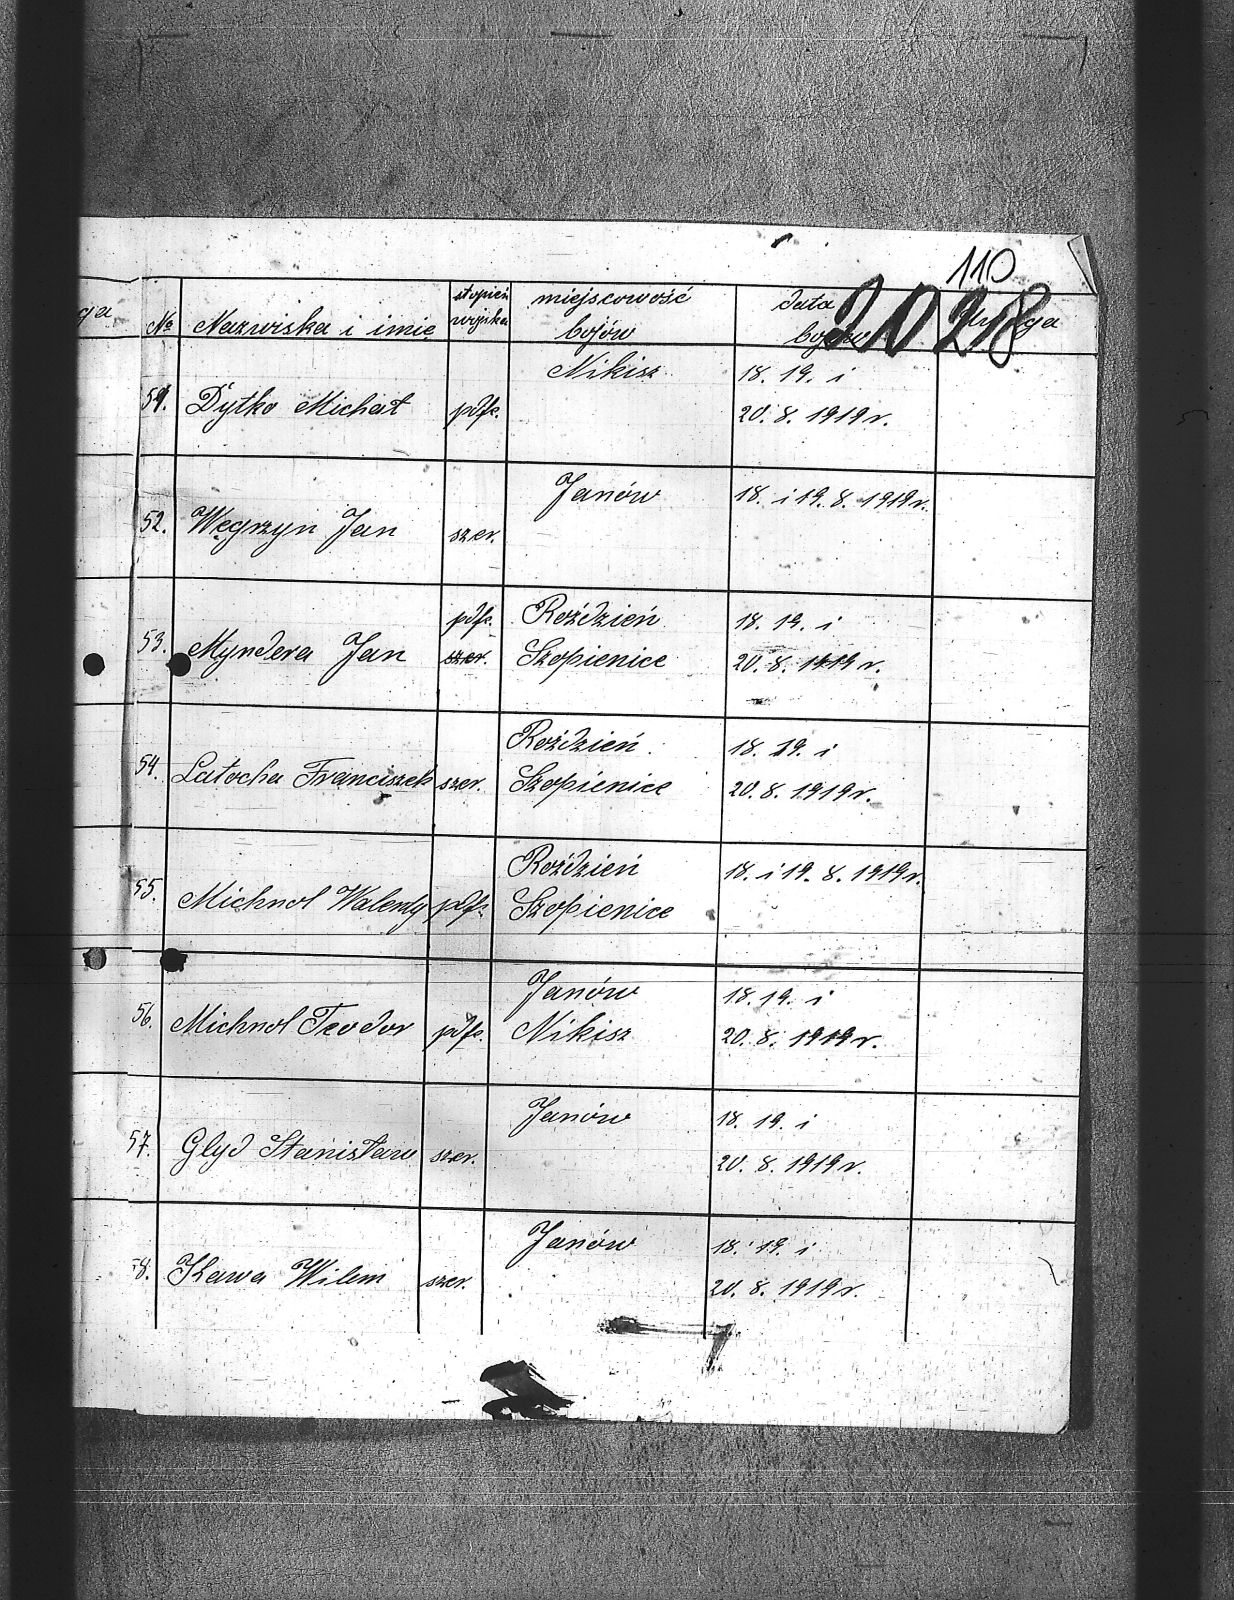 110
2028
ga № Nazwiska i imię stopień wojska miejscowość bojów data bojów
51. Dytko Michał pdfr. Nikisz 18. 19. i
20. 8. 1919 r.
52. Węgrzyn Jan szer. Janów 18. i 19. 8. 1919 r.
53. Myndera Jan pdfr. szer. Roździeń 18. 19. i
Szopienice 20. 8. 1919 r.
54. Latocha Franciszek szer. Roździeń 18. 19. i
Szopienice 20. 8. 1919 r.
55. Michnol Walenty pdfr. Roździeń 18. i 19. 8. 1919 r.
Szopienice
56. Michnol Teodor pdfr. Janów 18. 19. i
Nikisz 20. 8. 1919 r.
57. Glyd Stanisław szer. Janów 18. 19. i
20. 8. 1919 r.
8. Kawa Wilem szer. Janów 18. 19. i
20. 8. 1919 r.